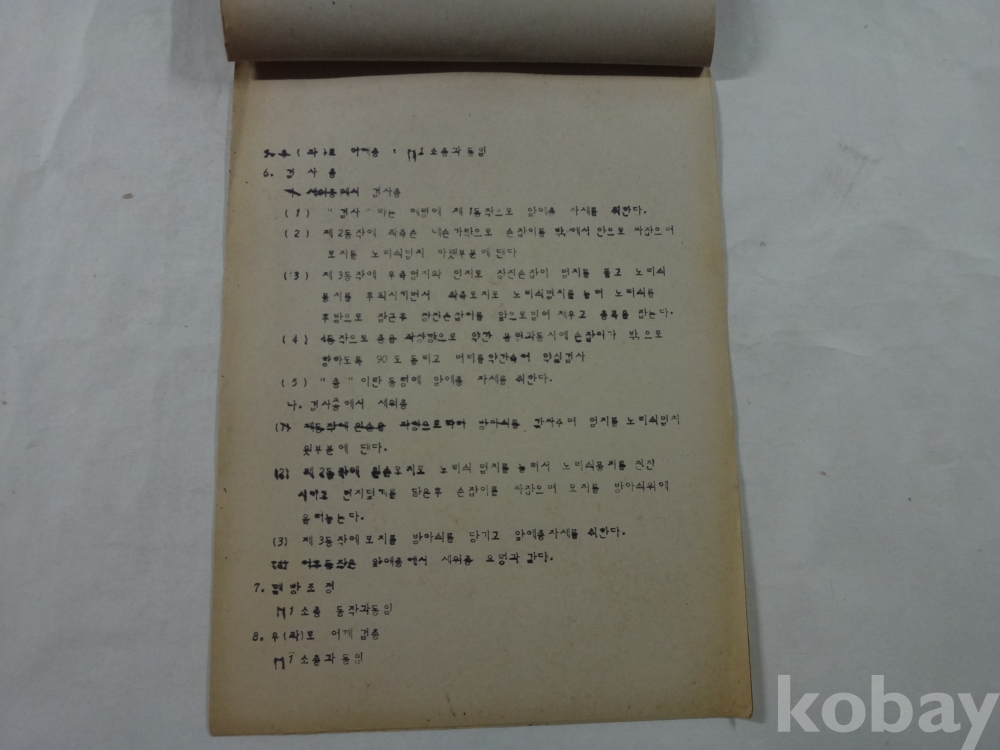 5. 우(좌)로 어깨총 · M1소총과동일
6. 검사총
가. 세워총에서 검사총
(1) "검사" 라는 예령에 제1동작으로 앞에총 자세를 취한다.
(2) 제2동작에 좌측손 네손가락으로 손잡이를 밖에서 안으로 싸잡으며
모지를 노리쇠멈치 아랫부분에 댄다
(3) 제3동작에 우측 인지로 장전손잡이 멈치를 풀고 노리쇠
뭉치를 후퇴시키면서 좌측모지로 노리쇠멈치를 눌러 노리쇠를
후방으로 장전손잡이를 앞으로밀어 채우고 총목을 잡는다.
(4) 4동작으로 총을 약간 올림과동시에 손잡이가 밖으로
향하도록 90도 돌리고 머리를약간숙여 약실검사
(5) "총" 이란 동령에 앞에총 자세를 취한다.
나. 검사총에서 세워총
(1) 방아쇠를 멈치를 노리쇠멈치
윗부분에 댄다.
(2) 제2동작에 노리쇠 멈치를 눌러서 노리쇠뭉치를 전진
시키고 먼지덮개를 닫은후 손잡이를 싸잡으며 모지를 방아쇠위에
올려놓는다.
(3) 제3동작에 모지를 방아쇠를 당기고 앞에총자세를 취한다.
(4) 이후동작은 앞에총에서 세워총 요령과 같다.
7. 멜빵조정
M1소총 동작과동일
8. 우(좌)로 어깨걸총
M1소총과동일
kobay